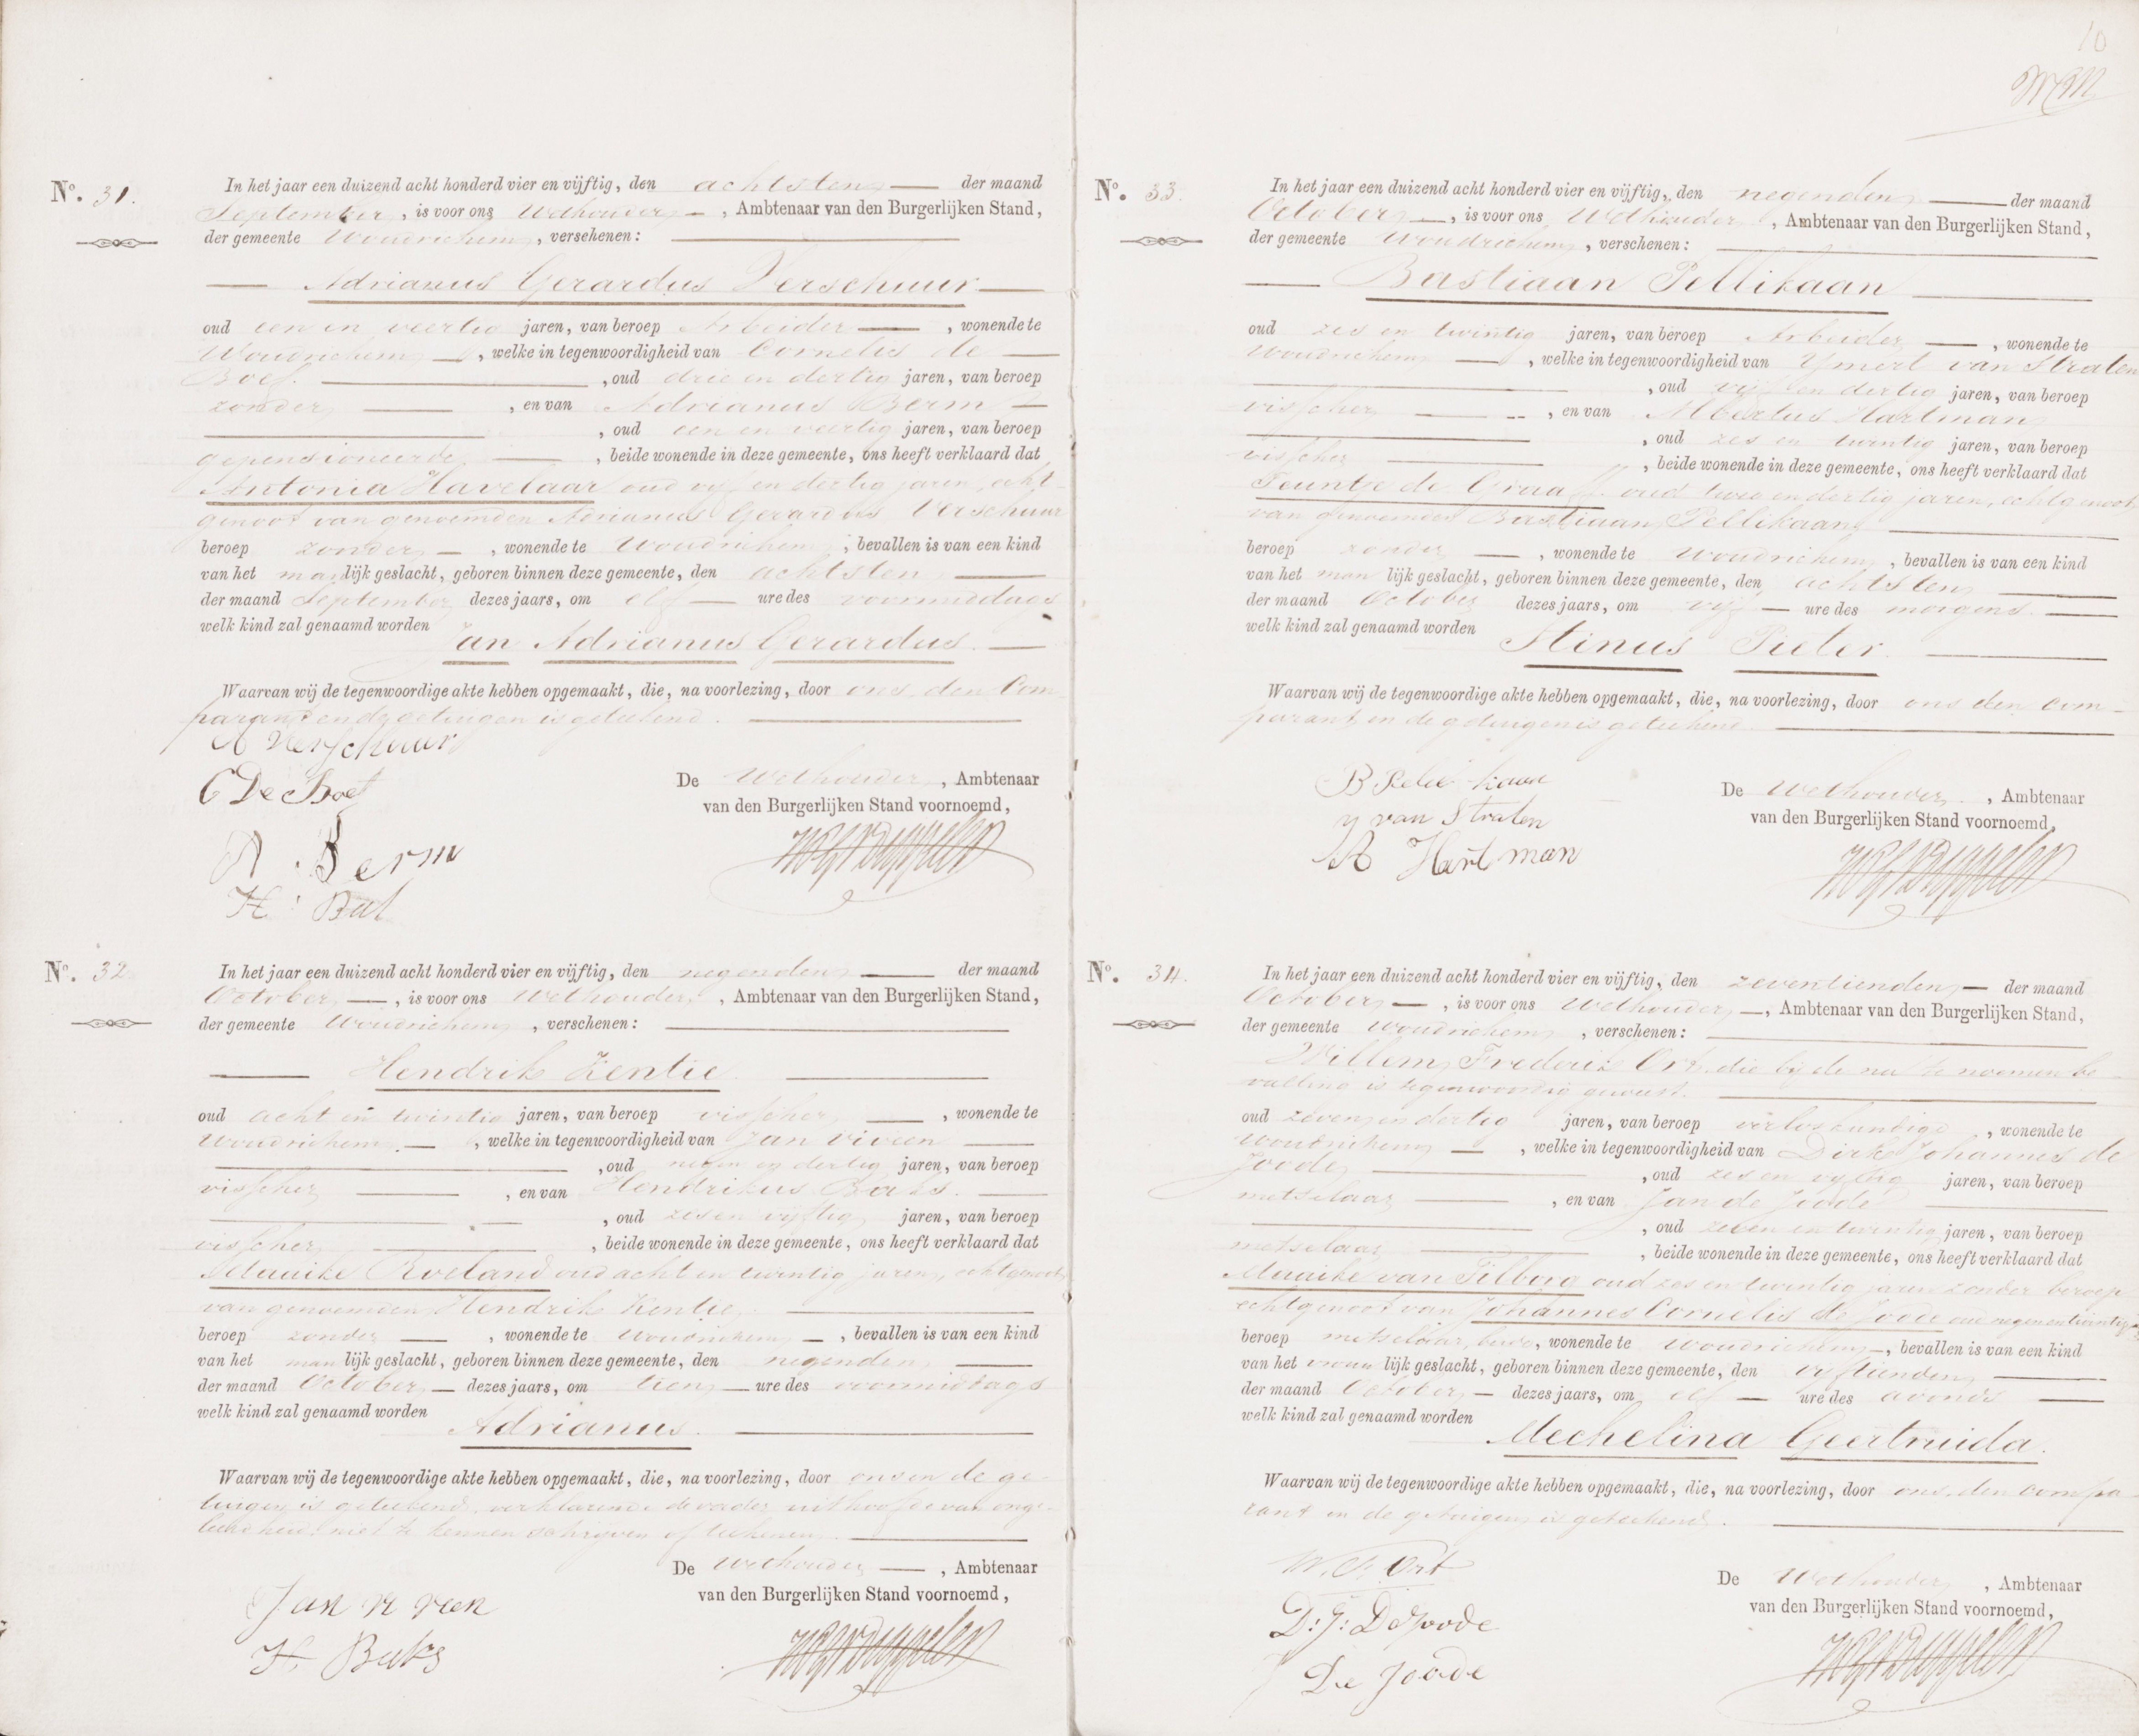 10
N°. 31.
In het jaar een duizend acht honderd vier en vijftig, den achtsten der maand
September, is voor ons Wethouder, Ambtenaar van den Burgerlijken Stand,
der gemeente Woudrichem, verschenen:
Adrianus Gerardus Verschuur
oud een en veertig jaren, van beroep Arbeider, wonende te
Woudrichem, welke in tegenwoordigheid van Cornelis de
Boef, oud drie en dertig jaren, van beroep
zonder, en van Adrianus Berm
, oud een en veertig jaren, van beroep
gepensioneerde, beide wonende in deze gemeente, ons heeft verklaard dat
Antonia Havelaar oud vijf en dertig jaren, echt-
genoot van genoemden Adrianus Gerardus Verschuur
beroep zonder, wonende te Woudrichem, bevallen is van een kind
van het manlijk geslacht, geboren binnen deze gemeente, den achtsten
der maand September dezes jaars, om elf ure des voormiddags
welk kind zal genaamd worden Jan Adrianus Gerardus.
Waarvan wij de tegenwoordige akte hebben opgemaakt, die, na voorlezing, door ons, den Com-
parant en de getuigen is geteekend.
A Verschuur
C De Boef
A. Berm
De Wethouder, Ambtenaar
van den Burgerlijken Stand voornoemd,
N°. 32
In het jaar een duizend acht honderd vier en vijftig, den negenden der maand
October, is voor ons Wethouder, Ambtenaar van den Burgerlijken Stand,
der gemeente Woudrichem, verschenen:
Hendrik Kentie
oud acht en twintig jaren, van beroep visscher, wonende te
Woudrichem, welke in tegenwoordigheid van Jan Viveen
, oud negen en dertig jaren, van beroep
visscher, en van Hendrikus Baks.
, oud zes en vijftig jaren, van beroep
visscher, beide wonende in deze gemeente, ons heeft verklaard dat
Maaike Roeland oud acht en twintig jaren, echtgenoot
van genoemden Hendrik Kentie,
beroep zonder, wonende te Woudrichem, bevallen is van een kind
van het manlijk geslacht, geboren binnen deze gemeente, den negenden
der maand October dezes jaars, om tien ure des voormiddags
welk kind zal genaamd worden Adrianus.
Waarvan wij de tegenwoordige akte hebben opgemaakt, die, na voorlezing, door ons en de ge-
tuigen is geteekend, verklarende de vader uit hoofde van onge-
leerdheid niet te kennen schrijven of teekenen.
De Wethouder, Ambtenaar
van den Burgerlijken Stand voornoemd,
Jan Viveen
H. Baks
N°. 33.
In het jaar een duizend acht honderd vier en vijftig, den negenden der maand
October, is voor ons Wethouder, Ambtenaar van den Burgerlijken Stand,
der gemeente Woudrichem, verschenen:
Bastiaan Pellikaan
oud zes en twintig jaren, van beroep Arbeider, wonende te
Woudrichem, welke in tegenwoordigheid van Ymert van Straten
, oud vijf en dertig jaren, van beroep
visscher, en van Albertus Hartman
, oud zes en twintig jaren, van beroep
visscher, beide wonende in deze gemeente, ons heeft verklaard dat
Teuntje de Graaf oud twee en dertig jaren, echtgenoot
van genoemden Bastiaan Pellikaan
beroep zonder, wonende te Woudrichem, bevallen is van een kind
van het manlijk geslacht, geboren binnen deze gemeente, den achtsten
der maand October dezes jaars, om vijf ure des morgens
welk kind zal genaamd worden Stinus Pieter.
Waarvan wij de tegenwoordige akte hebben opgemaakt, die, na voorlezing, door ons den Com-
parant en de getuigen is geteekend.
y van Straten
A Hartman
De Wethouder, Ambtenaar
van den Burgerlijken Stand voornoemd,
N°. 34.
In het jaar een duizend acht honderd vier en vijftig, den zeventienden der maand
October, is voor ons Wethouder, Ambtenaar van den Burgerlijken Stand,
der gemeente Woudrichem, verschenen:
Willem Frederik Ort, die bij de na te noemen be-
valling is tegenwoordig geweest.
oud zeven en dertig jaren, van beroep verloskundige, wonende te
Woudrichem, welke in tegenwoordigheid van Dirk Johannes de
Joode, oud zes en vijftig jaren, van beroep
metselaar, en van Jan de Joode
, oud zeven en twintig jaren, van beroep
metselaar, beide wonende in deze gemeente, ons heeft verklaard dat
Maaike van Tilborg oud zes en twintig jaren zonder beroep
echtgenoot van Johannes Cornelis de Joode oud negen en twintig
beroep metselaar, beide, wonende te Woudrichem, bevallen is van een kind
van het vrouwlijk geslacht, geboren binnen deze gemeente, den vijftienden
der maand October dezes jaars, om elf ure des avonds
welk kind zal genaamd worden Mechelina Geertruida.
Waarvan wij de tegenwoordige akte hebben opgemaakt, die, na voorlezing, door ons, den compa-
rant en de getuigen is geteekend.
W. F. Ort
D: J: De Joode
J De Joode
De Wethouder, Ambtenaar
van den Burgerlijken Stand voornoemd,